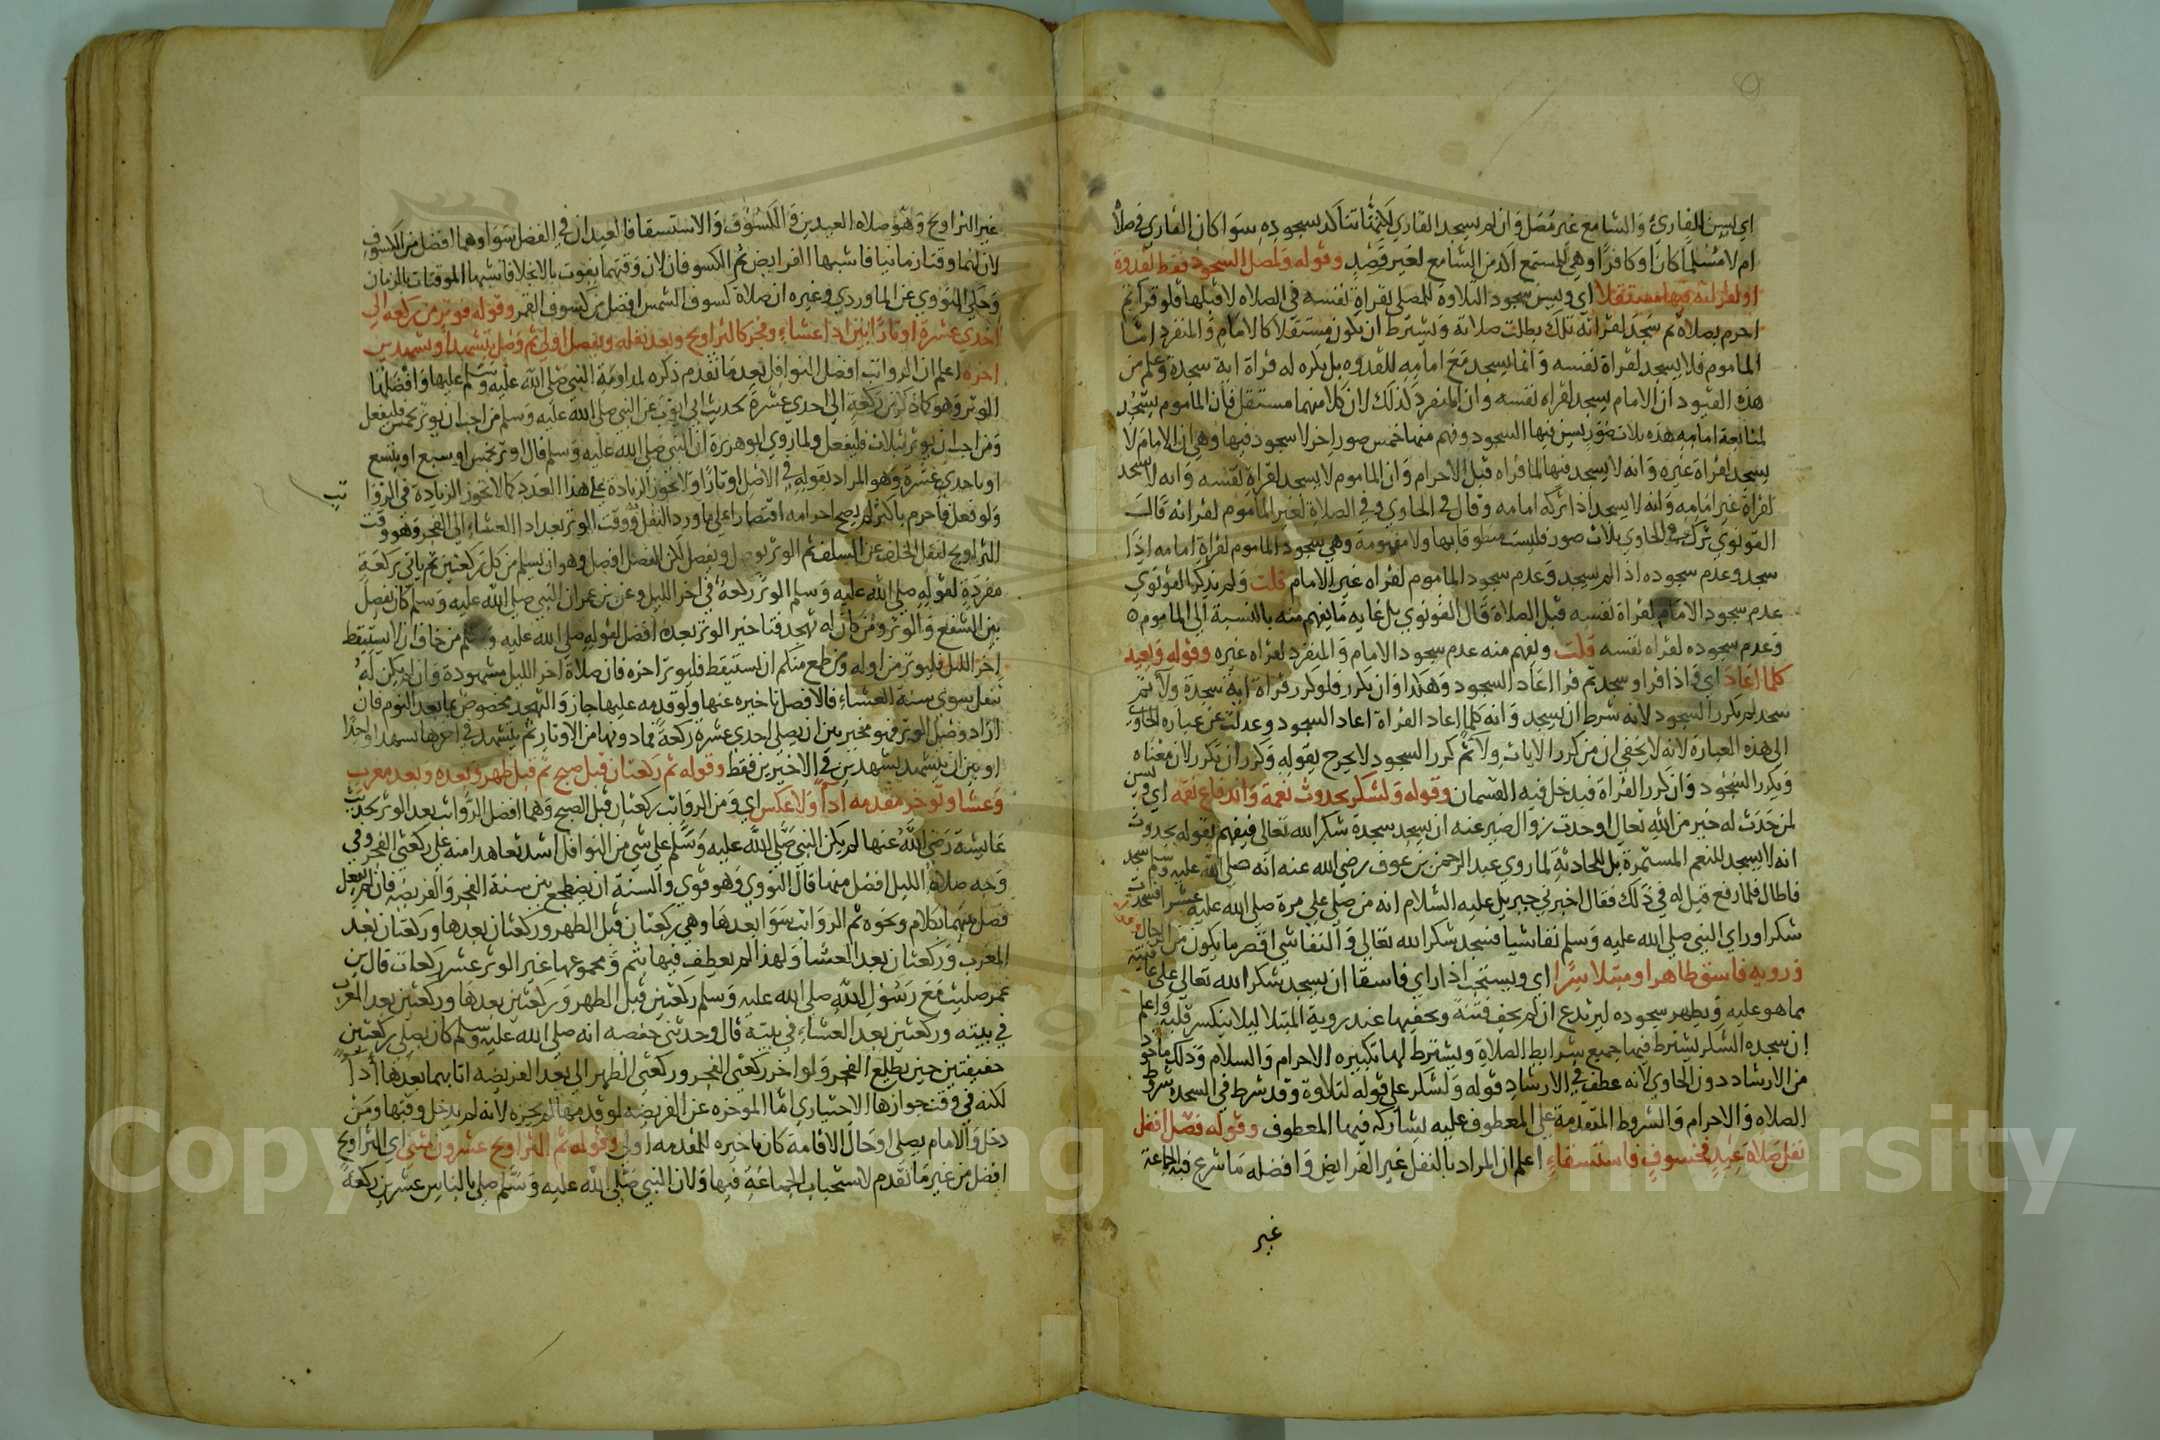 اي ليس القاري والسامع غير مصل وان لم يسجد القاري لكنها تتاكد بسجوده سوا كان القاري في صلاة
ام لا مسلما كان او كافرا وهي للمستمع اكد من السامع لغير قصد وقوله ولمصل السجود فقط لقدوة
او لقرائة فيها مستقلا اي ويسن سجود التلاوة للمصلي لقراة نفسه في الصلاه لا قبلها فلو قرا ثم
احرم بصلاة ثم سجد لقراته تلك بطلت صلاته ويشترط ان يكون مستقلا كالامام والمنفرد اما
الماموم فلا يسجد لقراة نفسه وانما يسجد مع امامه للقدوه بل يكره له قراة اية سجدة وعلم من
هذه القيود ان الامام يسجد لقراه نفسه وان المنفرد كذلك لان كلا منهما مستقل فان الماموم يسجد
لمتابعة امامه هذه ثلاث صور يسن فيها السجود وفهم منها خمس صور اخر لا سجود فيها وهي ان الامام لا
يسجد لقراة غيره وانه لا يسجد فيها لما قراه قبل الاحرام وان الماموم لا يسجد لقراة نفسه وانه لا يسجد
لقراة غير امامه وانه لا يسجد اذا تركه امامه وقال في الحاوي وفي الصلاة لغير الماموم لقرائه قال
القونوي ترك في الحاوي ثلاث صور فليست منطوقا بها ولا مفهومة وهي سجود الماموم لقراة امامه اذا
سجد وعدم سجوده اذا لم يسجد وعدم سجود الماموم لقراه غير الامام قلت ولم يذكر القونوي
عدم سجود الامام لقراة نفسه قبل الصلاة قال القونوي بل غايه ما يفهم منه بالنسبة الي الماموم
وعدم سجوده لقراه نفسه قلت ويفهم منه عدم سجود الامام والمنفرد لقراه غيره وقوله ويعيد
كلما اعاد اي فاذا قرا وسجد ثم قرا اعاد السجود وهكذا وان يكرر فلو كرر قراة اية سجدة ولا ثم
سجد لم يكرر السجود لانه شرط ان يسجد وانه كلما اعاد القراة اعاد السجود وعدلت عن عباره الحاوي
الي هذه العبارة لانه لا يخفي ان من كرر الايات ولا ثم كرر السجود لا يحرج بقوله وكرر ان يكرر لان معناه
ويكرر السجود وان كرر القراة فيدخل فيه القسمان وقوله ولشكر بحدوث نعمة واندفاع نقمه اي ويسن
لمن حدث له خير من الله تعالي او حدث زوال ضير عنه ان يسجد سجدة شكر لله تعالي فيفهم بقوله بحدوث
انه لا يسجد للنعم المستمرة بل للحادثة لما روي عبد الرحمن بن عوف رضي الله عنه انه صلي الله عليه وسلم سجد
فاطال فلما رفع قيل له في ذلك فقال اخبرني جبريل عليه السلام انه من صلي علي مرة صلي الله عليه عشرا فسجدت
شكرا وراي النبي صلي الله عليه وسلم نغاشيا فسجد شكرا لله تعالي والنغاشي اقصر ما يكون من الرجال
ورويه فاسق ظاهرا ومبتلا سرا اي ويستحب اذا راي فاسقا ان يسجد شكرا لله تعالي علي عافيته
مما هو عليه ويظهر سجوده ليرتدع ان لم يخف فتنة ويخفيها عند روية المبتلا ليلا ينكسر قلبه واعلم
ان سجده الشكر يشترط فيها جميع شرايط الصلاة ويشترط لها تكبيره الاحرام والسلام وذلك ماخوذ
من الارشاد دون الحاوي لانه عطف في الارشاد قوله ولشكر علي قوله لتلاوة وقد شرط في السجدة شروط
الصلاه والاحرام والشروط المتقدمة علي المعطوف عليه يشاركه فيها المعطوف وقوله فصل افضل
نفل صلاة عيد فخسوف فاستسقاء اعلم ان المراد بالنفل غير الفرايض وافضله ما شرع فيه الجماعة
غير
غير التراويح وهو صلاه العيدين والكسوف والاستسقا فالعيدان في الفضل سوا وهما افضل من الكسوف
لان لهما وقتا زمانيا فاشبها الفرايض ثم الكسوفان لان وقتهما يفوت بالانجلا فاشبها الموقتات بالزمان
وحكي النووي عن الماوردي وغيره ان صلاة كسوف الشمس افضل من كسوف القمر وقوله فوتر من ركعه الي
احدي عشرة اوتارا بين ادا عشاء وفجر كالتراويح وبعد نفله وبفصل اولي ثم وصل بتشهد او تشهدين
اخره اعلم ان الرواتب افضل النوافل بعد ما تقدم ذكره لمداومة النبي صلي الله عليه وسلم عليها وافضلها
الوتر وهو كما ذكر من ركعة الي احدي عشرة لحديث ابي ايوب عن النبي صلي الله عليه وسلم من احب ان يوتر بخمس فليفعل
ومن احب ان يوتر بثلاث فليفعل ولما روي ابو هريرة ان النبي صلي الله عليه وسلم قال اوتر بخمس او سبع او بتسع
او باحدي عشرة وهو المراد بقوله في الاصل اوتارا ولا تجوز الزيادة علي هذا العدد كما لا تجوز الزيادة في الروا
تب
ولو فعل فاحرم باكثر لم يصح احرامه اقتصارا علي ما ورد النقل ووقت الوتر بعد ادا العشاء الي الفجر وهو وقت
التراويح لنقل الخلف عن السلف ثم الوتر يوصل ويفصل لكن الفصل افضل وهو ان يسلم من كل ركعتين ثم ياتي بركعة
مفردة لقوله صلي الله عليه وسلم الوتر ركعة في اخر الليل وعن بن عمر ان النبي صلي الله عليه وسلم كان يفصل
بين الشفع والوتر ومن كان له تهجد فتاخير الوتر بعده افضل لقوله صلي الله عليه وسلم من خاف ان لا يستيقظ
اخر الليل فليوتر من اوله ومن طمع منكم ان يستيقظ فليوتر اخره فان صلاة اخر الليل مشهودة وان لم يكن له
تنفل سوي سنة العشاء فالافضل تاخيره عنها ولو قدمه عليها جاز والتهجد مخصوص بما بعد النوم فان
اراد وصل الوتر فهو مخير بين ان يصلي احدي عشرة ركعة فما دونها من الاوتار ثم يتشهد في اخرها تشهدا واحدا
او بين ان يتشهد تشهدين في الاخيرين فقط وقوله ثم ركعتان قبل صبح ثم قبل ظهر وبعده وبعد مغرب
وعشا وتوخر مقدمه اداً ولا عكس اي ومن الرواتب ركعتان قبل الصبح وهما افضل الرواتب بعد الوتر لحديث
عايشة رضي الله عنها لم يكن النبي صلي الله عليه وسلم علي شي من النوافل اشد تعاهدا منه علي ركعتي الفجر وفي
وجه صلاة الليل افضل منها قال النووي وهو قوي والسنة ان يضطجع بين سنة الفجر والفريضه فان لم يفعل
فصل بينهما بكلام ونحوه ثم الرواتب سوا بعدها وهي ركعتان قبل الظهر وركعتان بعدها وركعتان بعد
المغرب وركعتان بعد العشا ولهذا لم يعطف فيها بثم ومجموعها غير الوتر عشر ركعات قال بن
عمر صليت مع رسول الله صلي الله عليه وسلم ركعتين قبل الظهر وركعتين بعدها وركعتين بعد المغرب
في بيته وركعتين بعد العشاء في بيته قال وحدثتني حفصه انه صلي الله عليه وسلم كان يصلي ركعتين
خفيفتين حين يطلع الفجر ولو اخر ركعتي الفجر وركعتي الظهر الي بعد الفريضه اتا بهما بعدها اداً
لكنه في وقت جوازها الاختياري اما الموخره عن الفريضه لو قدمها لم يجزه لانه لم يدخل وقتها ومن
دخل والامام يصلي او حال الاقامة كان تاخيره المقدمه اولي وقوله ثم التراويح عشرون مثني اي التراويح
افضل من غير ما تقدم لاستحباب الجماعة فيها ولان النبي صلي الله عليه وسلم صلي بالناس عشرين ركعة